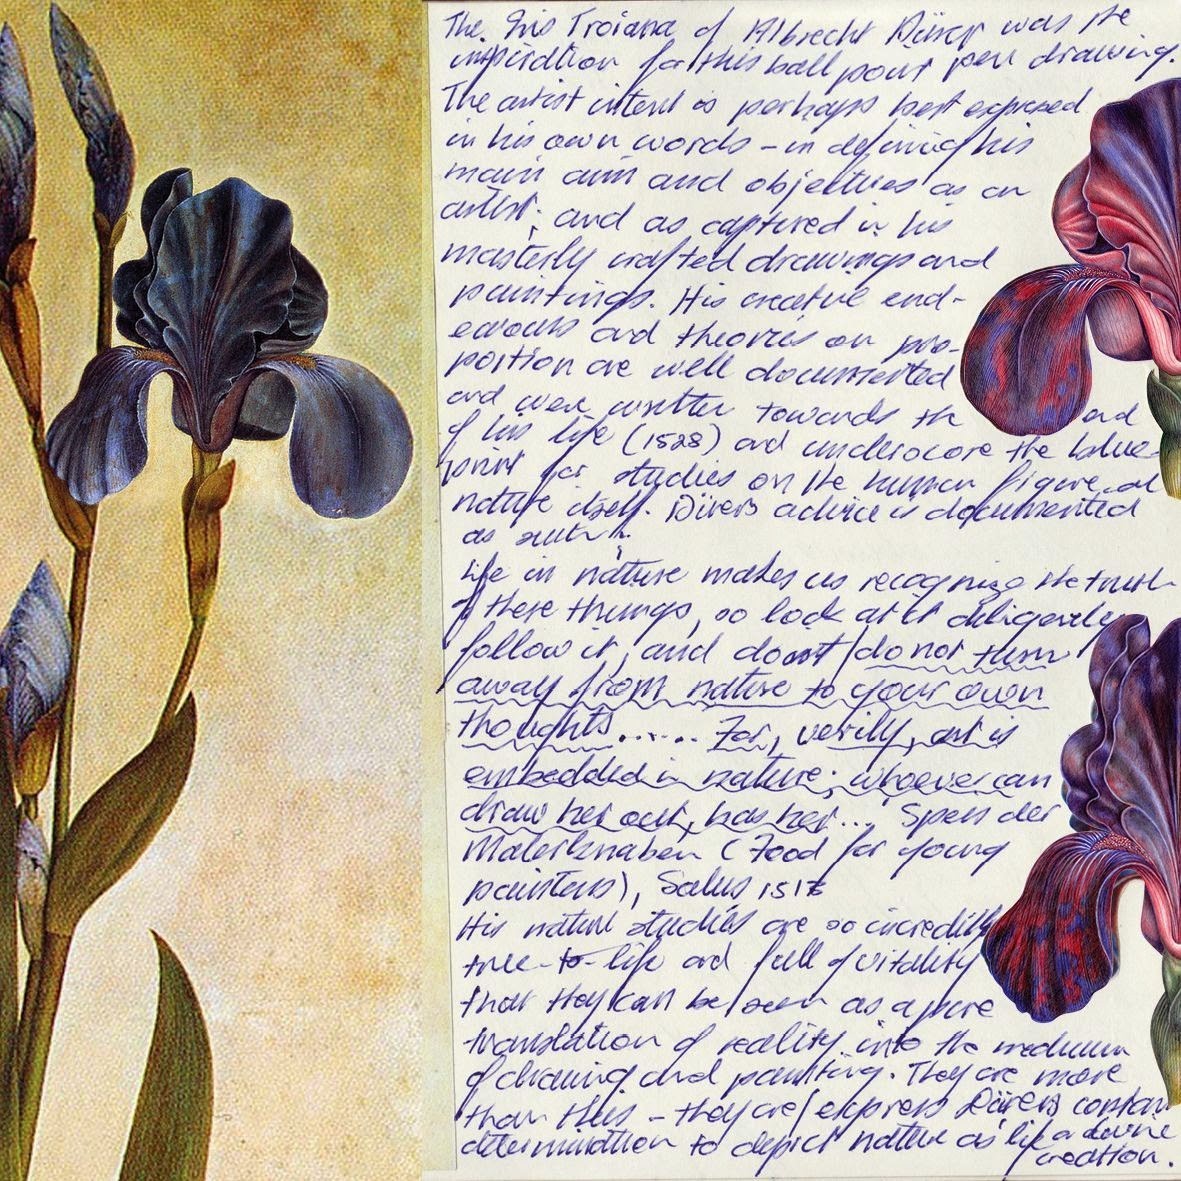 The Iris Troiana of Albrecht Dürer was the
inspiration for this ball point pen drawing.
The artist intent is perhaps best expressed
in his own words – in defining his
main aim and objectives as an
artist; and as captured in his
masterly crafted drawings and
paintings. His creative end-
eavours and theories on pro-
portion are well documented
and were written towards the end
of his life (1528) and underscore the blue-
print for studies on the human figure and
nature itself. Dürers advice is documented
as such:
Life in nature makes us recognize the truth
of these things, so look at it diligently
follow it, and do not turn
away from nature to your own
thoughts...... For, verily, art is
embedded in nature; whoever can
draw her out, has her... Speis der
Malerknaben (Food for young
painters), Salus 151
His nature studies are so incredibly
true-to-life and full of vitality
that they can be seen as a pure
translation of reality into the medium
of drawing and painting. They are more
than this – they are/express Dürers constan
determination to depict nature as life a divine
creation.